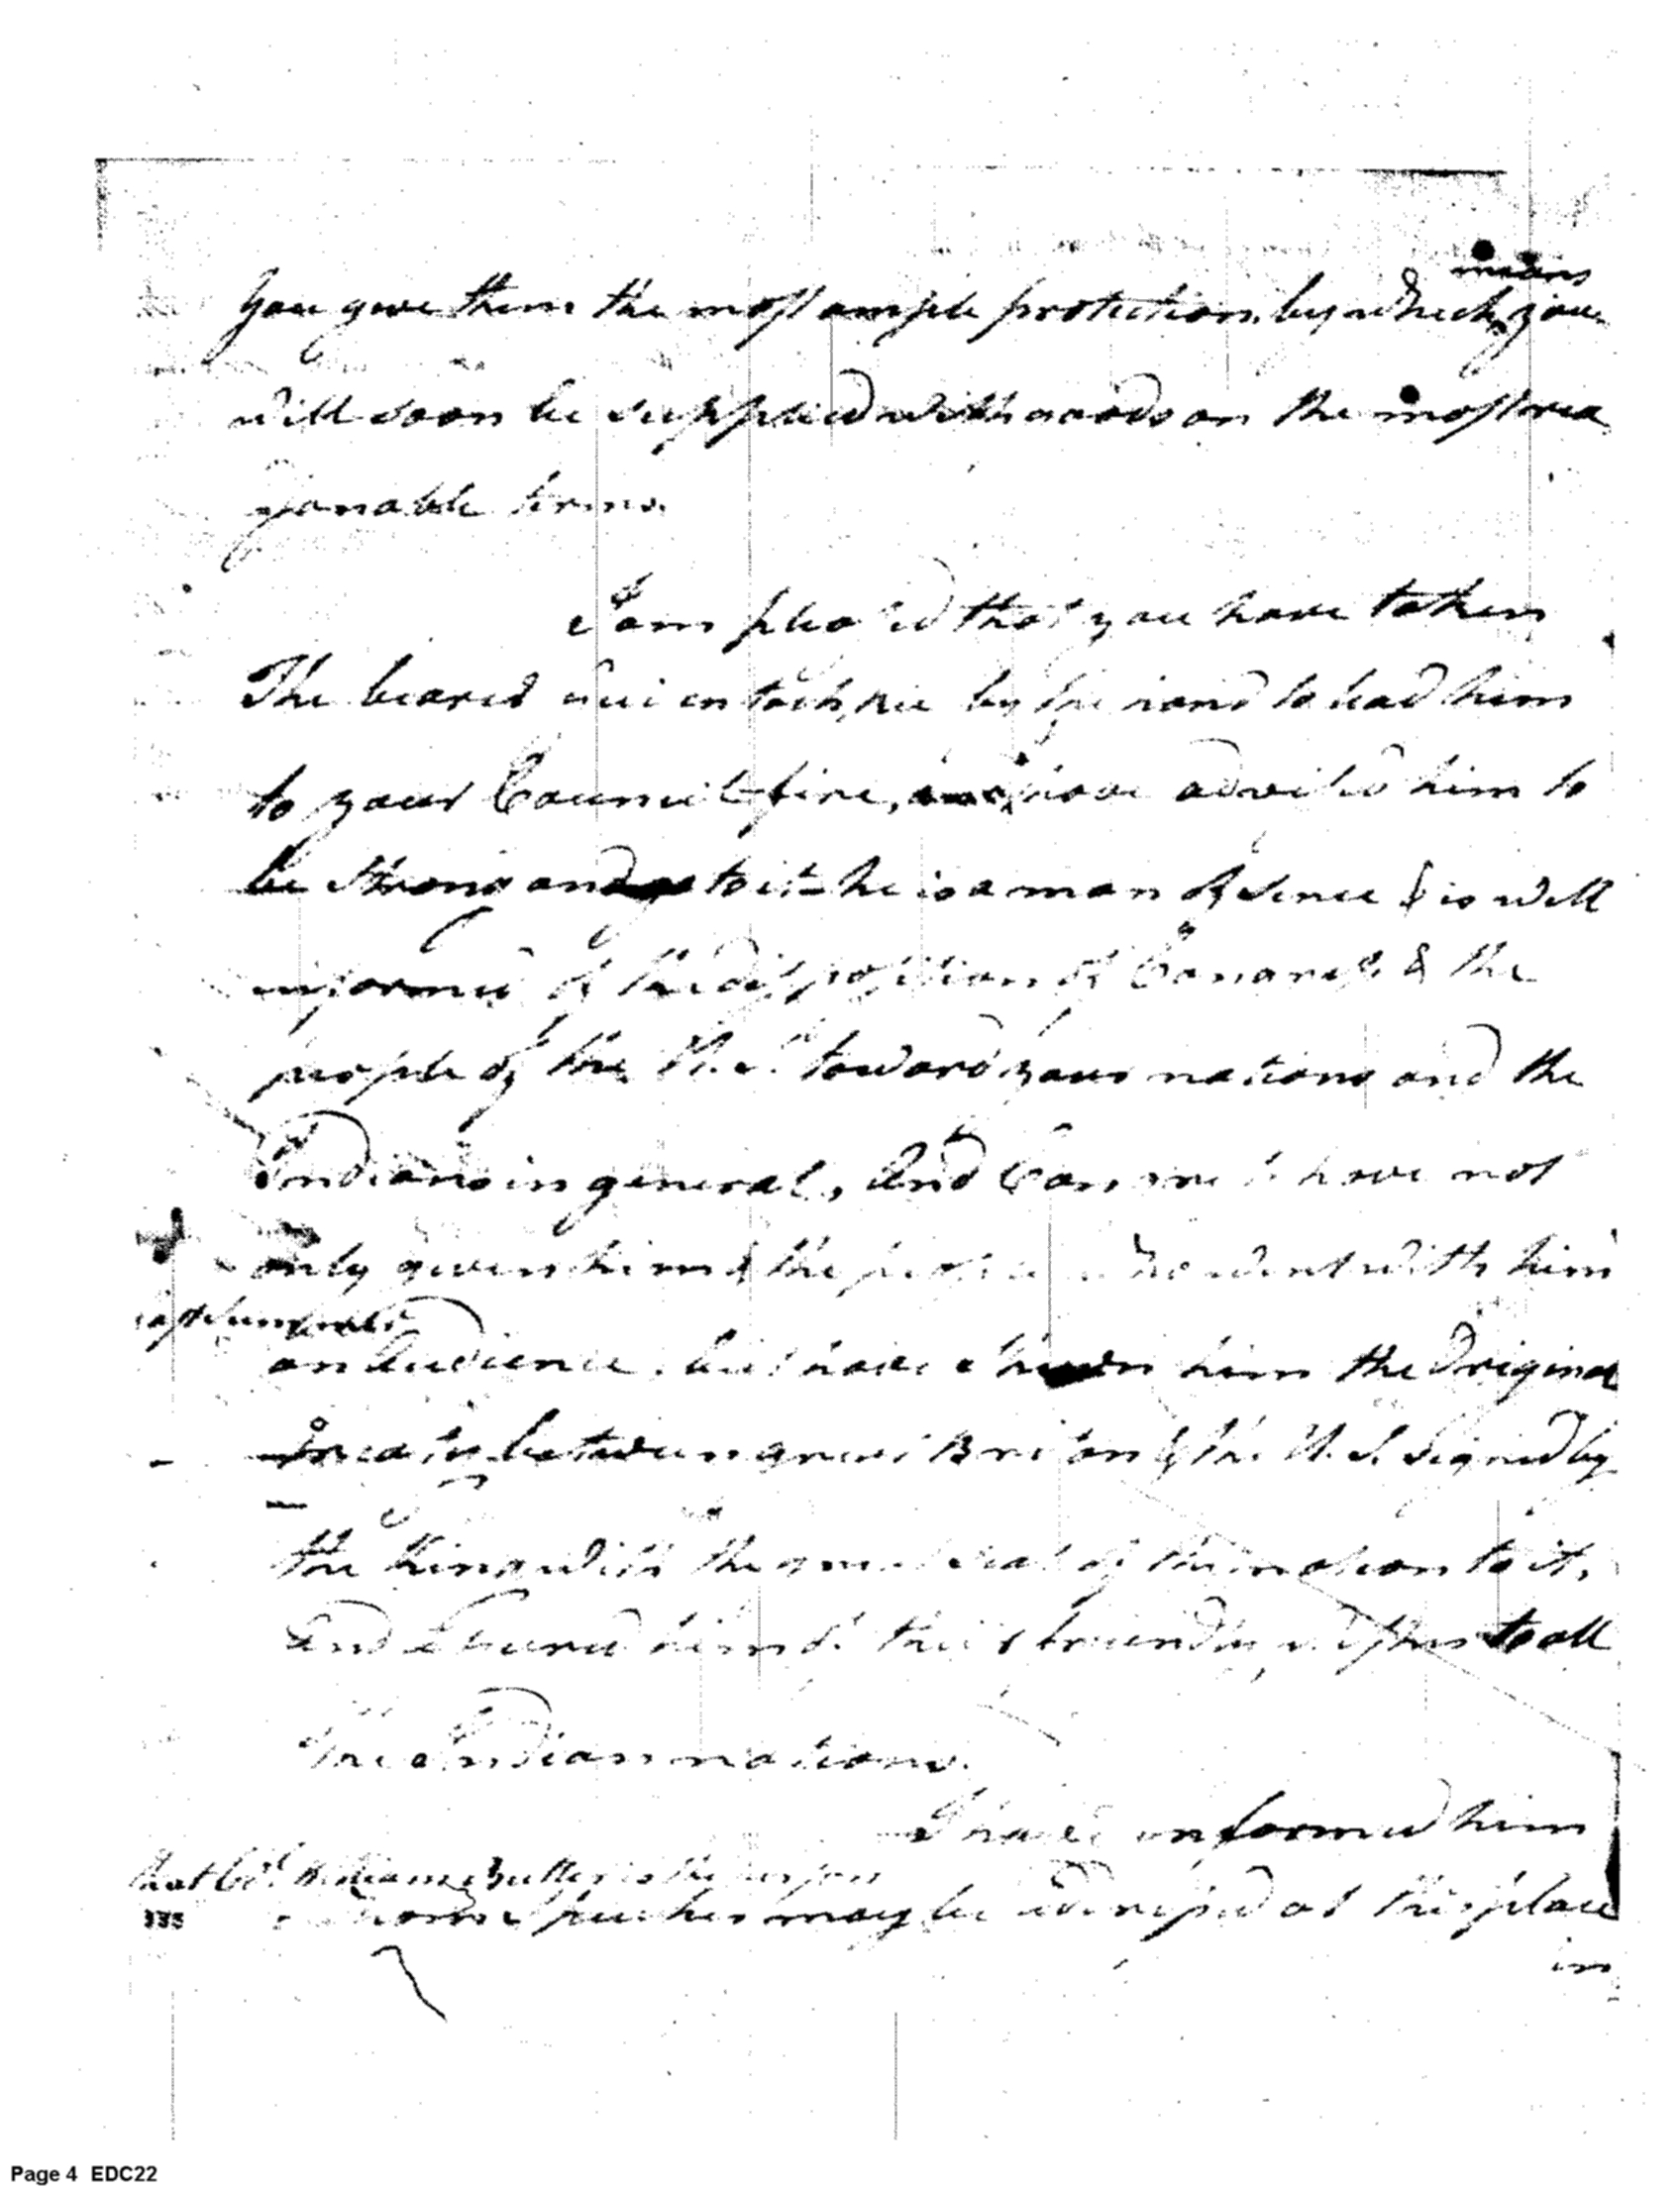 means
you give them the most ample protection, by which you
will soon be supplied with goods on the most rea
sonable terms.
I am pleas'd that you have taken
The bearer by the hand to lead him
to your Council fire, have advised him to
be strong and to it he is a man of sence & is well
informed of the disposition of Congress & the
people of the U.S. toward your nations and the
Indians in general, And Congress have not
only given him & the people who went with him
an audience, but have shewn him the Original
Treaty between great Britan & the U.S. signed by
the King with the great seal of the nation to it,
And assured him of their friendly wishes to all
the Indian nations.
I have informed him
that Col. William Butler is the person
whom speeches may be addressed at this place
335
in
Page 4 EDC22